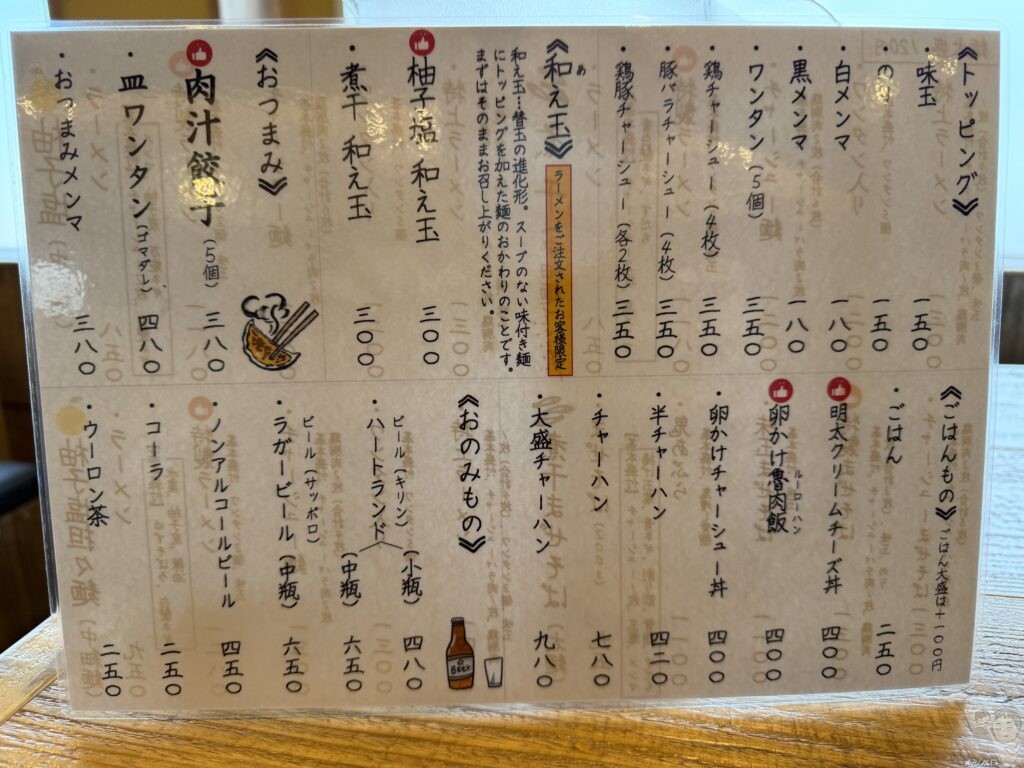 《トッピング》
・味玉 一五〇
・のり 一五〇
・白メンマ 一八〇
・黒メンマ 一八〇
・ワンタン(5個) 三五〇
・鶏チャーシュー(4枚) 三五〇
・豚バラチャーシュー(4枚) 三五〇
・鶏豚チャーシュー(各2枚) 三五〇
《和え玉》
あ
ラーメンをご注文されたお客様限定
和え玉…替玉の進化形。スープのない味付き麺
にトッピングを加えた麺のおかわりのことです。
まずはそのままお召し上がりください。
柚子塩 和え玉 三〇〇
・煮干 和え玉 三〇〇
《おつまみ》
肉汁餃子(5個) 三八〇
・皿ワンタン(ゴマダレ) 四八〇
・おつまみメンマ 三八〇
《ごはんもの》 ごはん大盛は+一〇〇円
・ごはん 二五〇
明太クリームチーズ丼 四〇〇
卵かけ魯肉飯 四〇〇
ルーローハン
・卵かけチャーシュー丼 四〇〇
・半チャーハン 四二〇
・チャーハン 七八〇
・大盛チャーハン 九八〇
《おのみもの》
ビール(キリン)
・ハートランド (小瓶) 四八〇
(中瓶) 六五〇
ビール(サッポロ)
・ラガービール(中瓶) 六五〇
・ノンアルコールビール 四五〇
・コーラ 二五〇
・ウーロン茶 二五〇
Beer